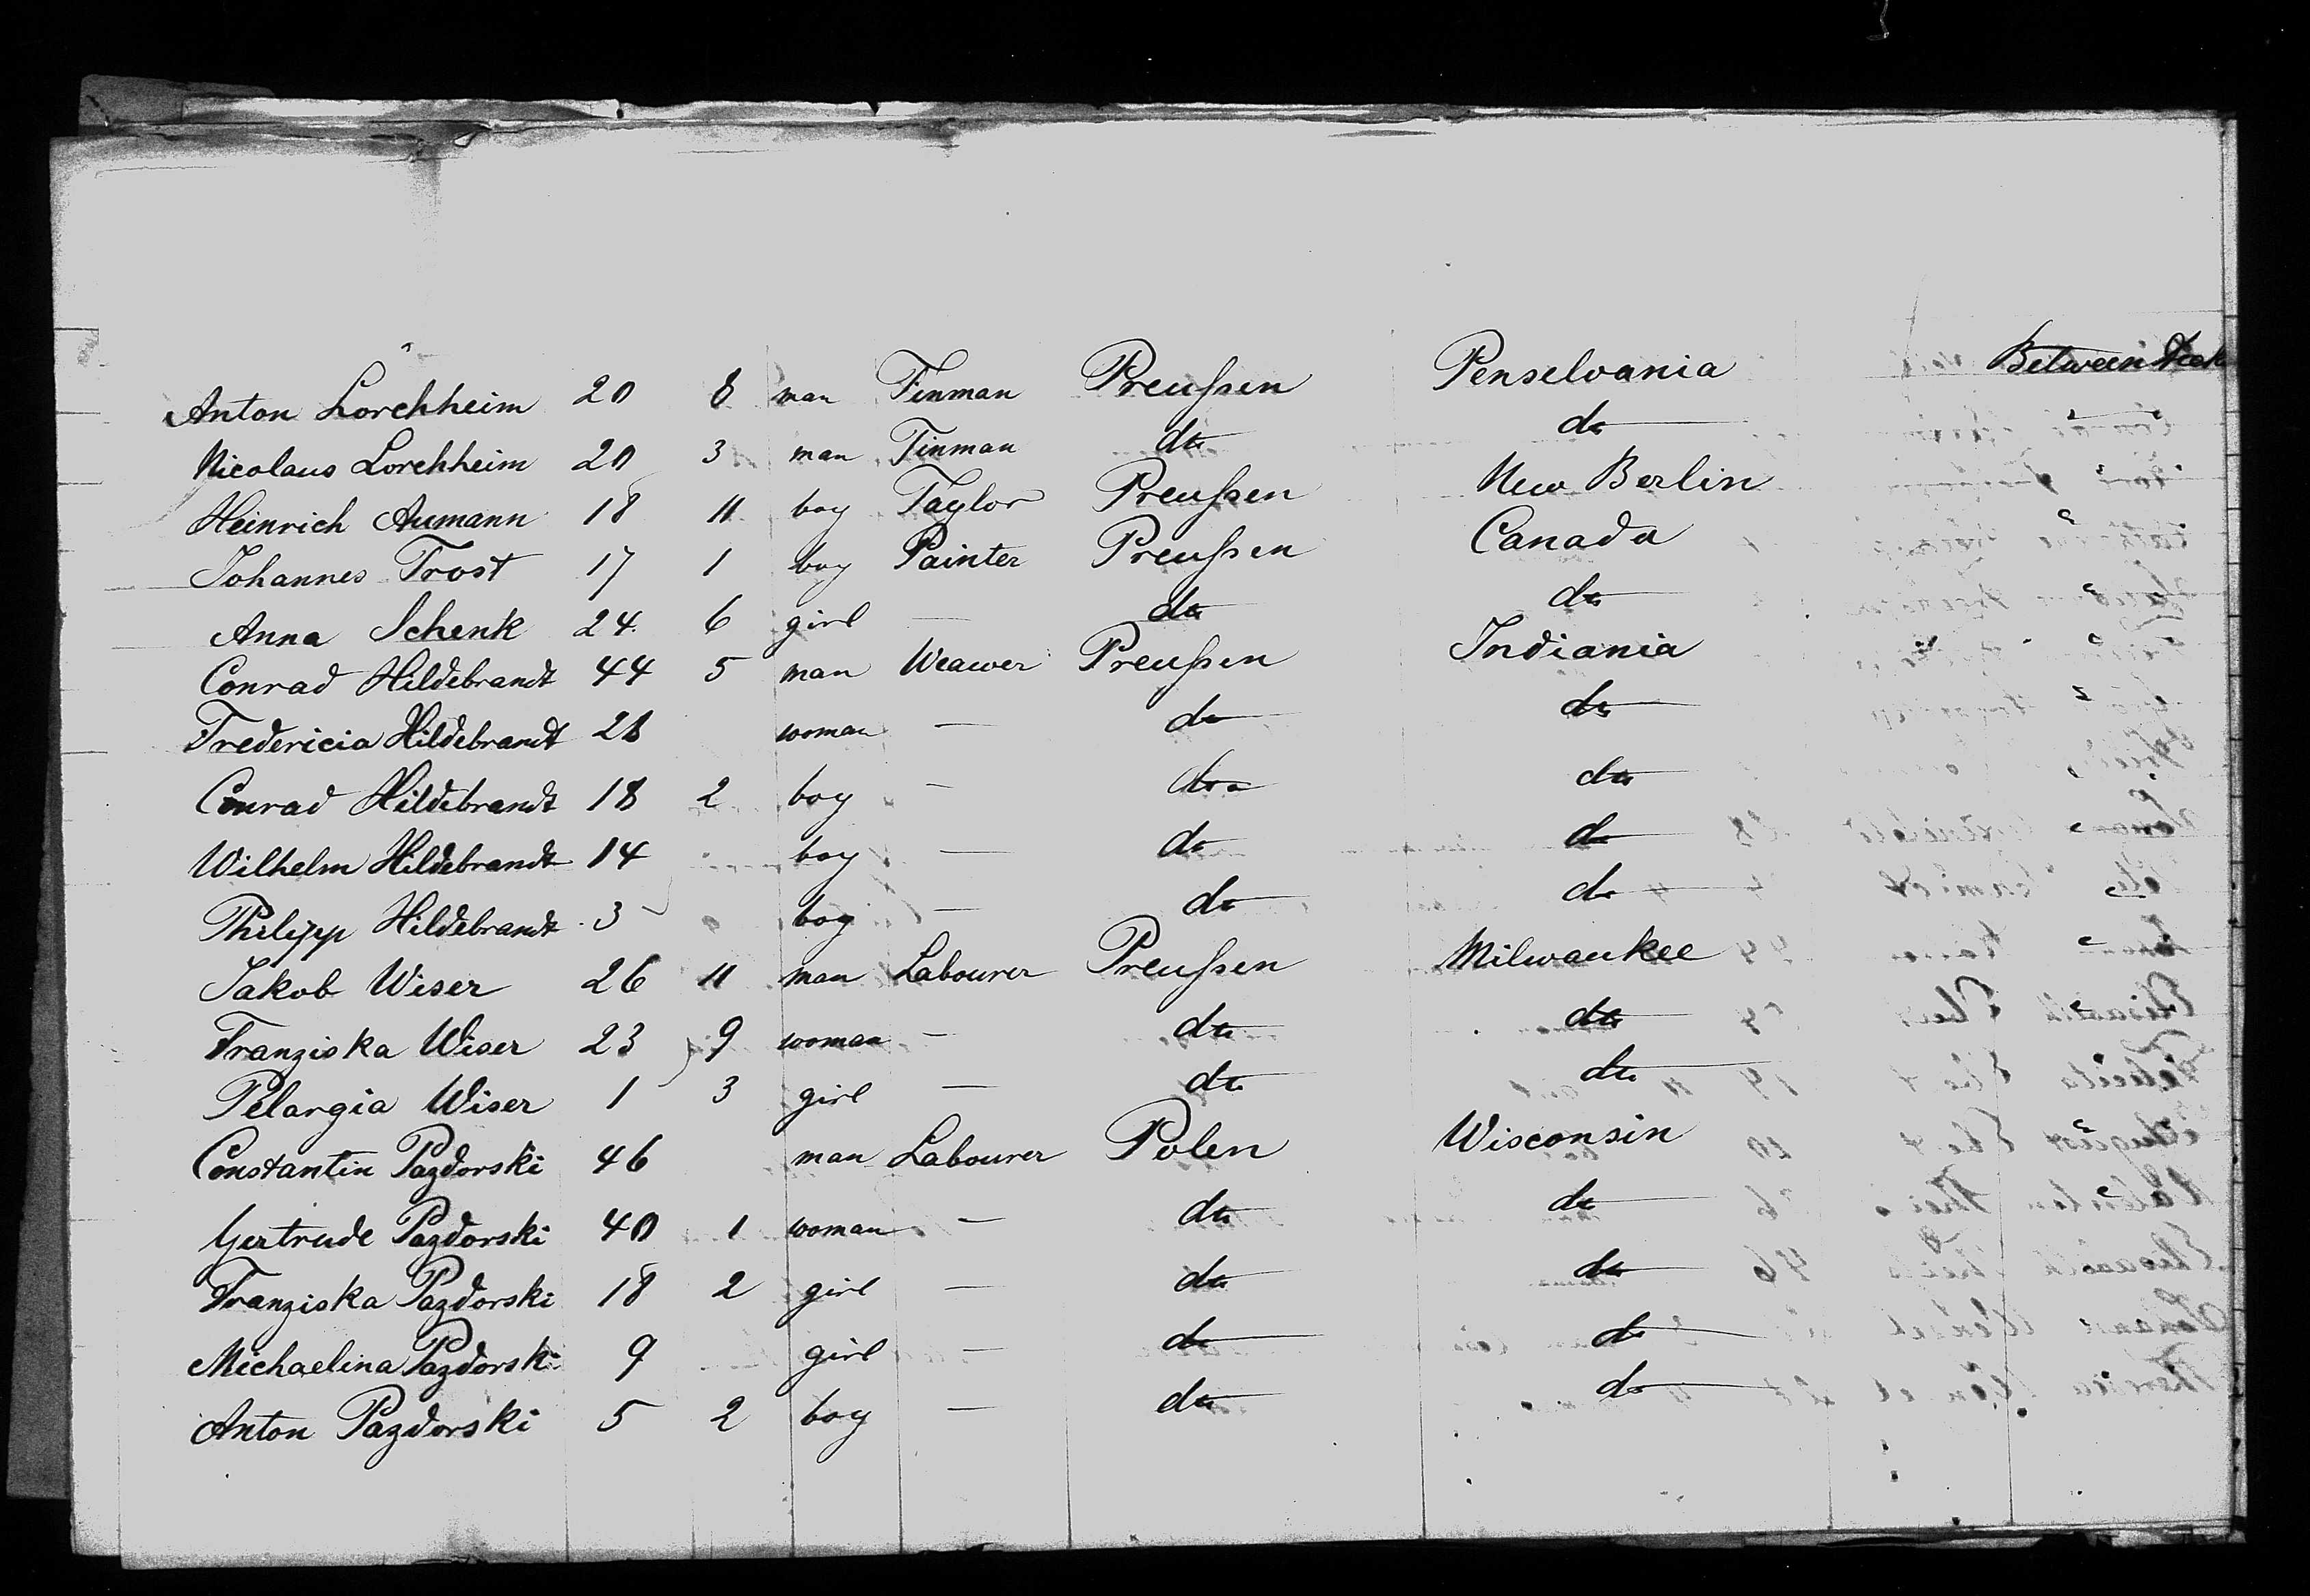 Anton Lorchheim 20 8 man Tinman Preußen Penselvania Between Deck
Nicolaus Lorchheim 20 3 man Tinman do do
Heinrich Aumann 18 11 boy Taylor Preußen New Berlin
Johannes Trost 17 1 boy Painter Preußen Canada
Anna Schenk 24 6 girl — do do
Conrad Hildebrandt 44 5 man Weawer Preußen Indiania
Fredericia Hildebrandt woman — do do
Conrad Hildebrandt 18 2 boy — do do
Wilhelm Hildebrandt 14 boy — do do
Philipp Hildebrandt 3 boy — do do
Jakob Wiser 26 11 man Labourer Preußen Milwaukee
Franziska Wiser 23 9 woman — do do
Pelargia Wiser 1 3 girl — do do
Constantin Pazdorski 46 man Labourer Polen Wisconsin
Gertrude Pazdorski 40 1 woman — do do
Franziska Pazdorski 18 2 girl — do do
Michaelina Pazdorski 9 girl — do do
Anton Pazdorski 5 2 boy — do do